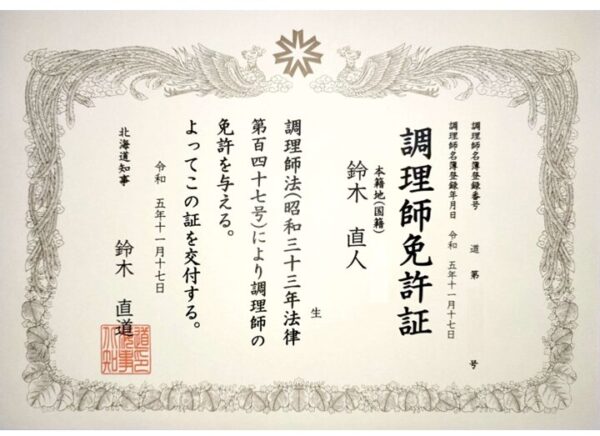 調理師名簿登録番号 道 第 号
調理師名簿登録年月日 令和 五年十一月十七日
調理師免許証
本籍地(国籍)
鈴木 直人
生
調理師法(昭和三十三年法律
第百四十七号)により調理師の
免許を与える。
よってこの証を交付する。
令和 五年十一月十七日
北海道知事 鈴木 直道